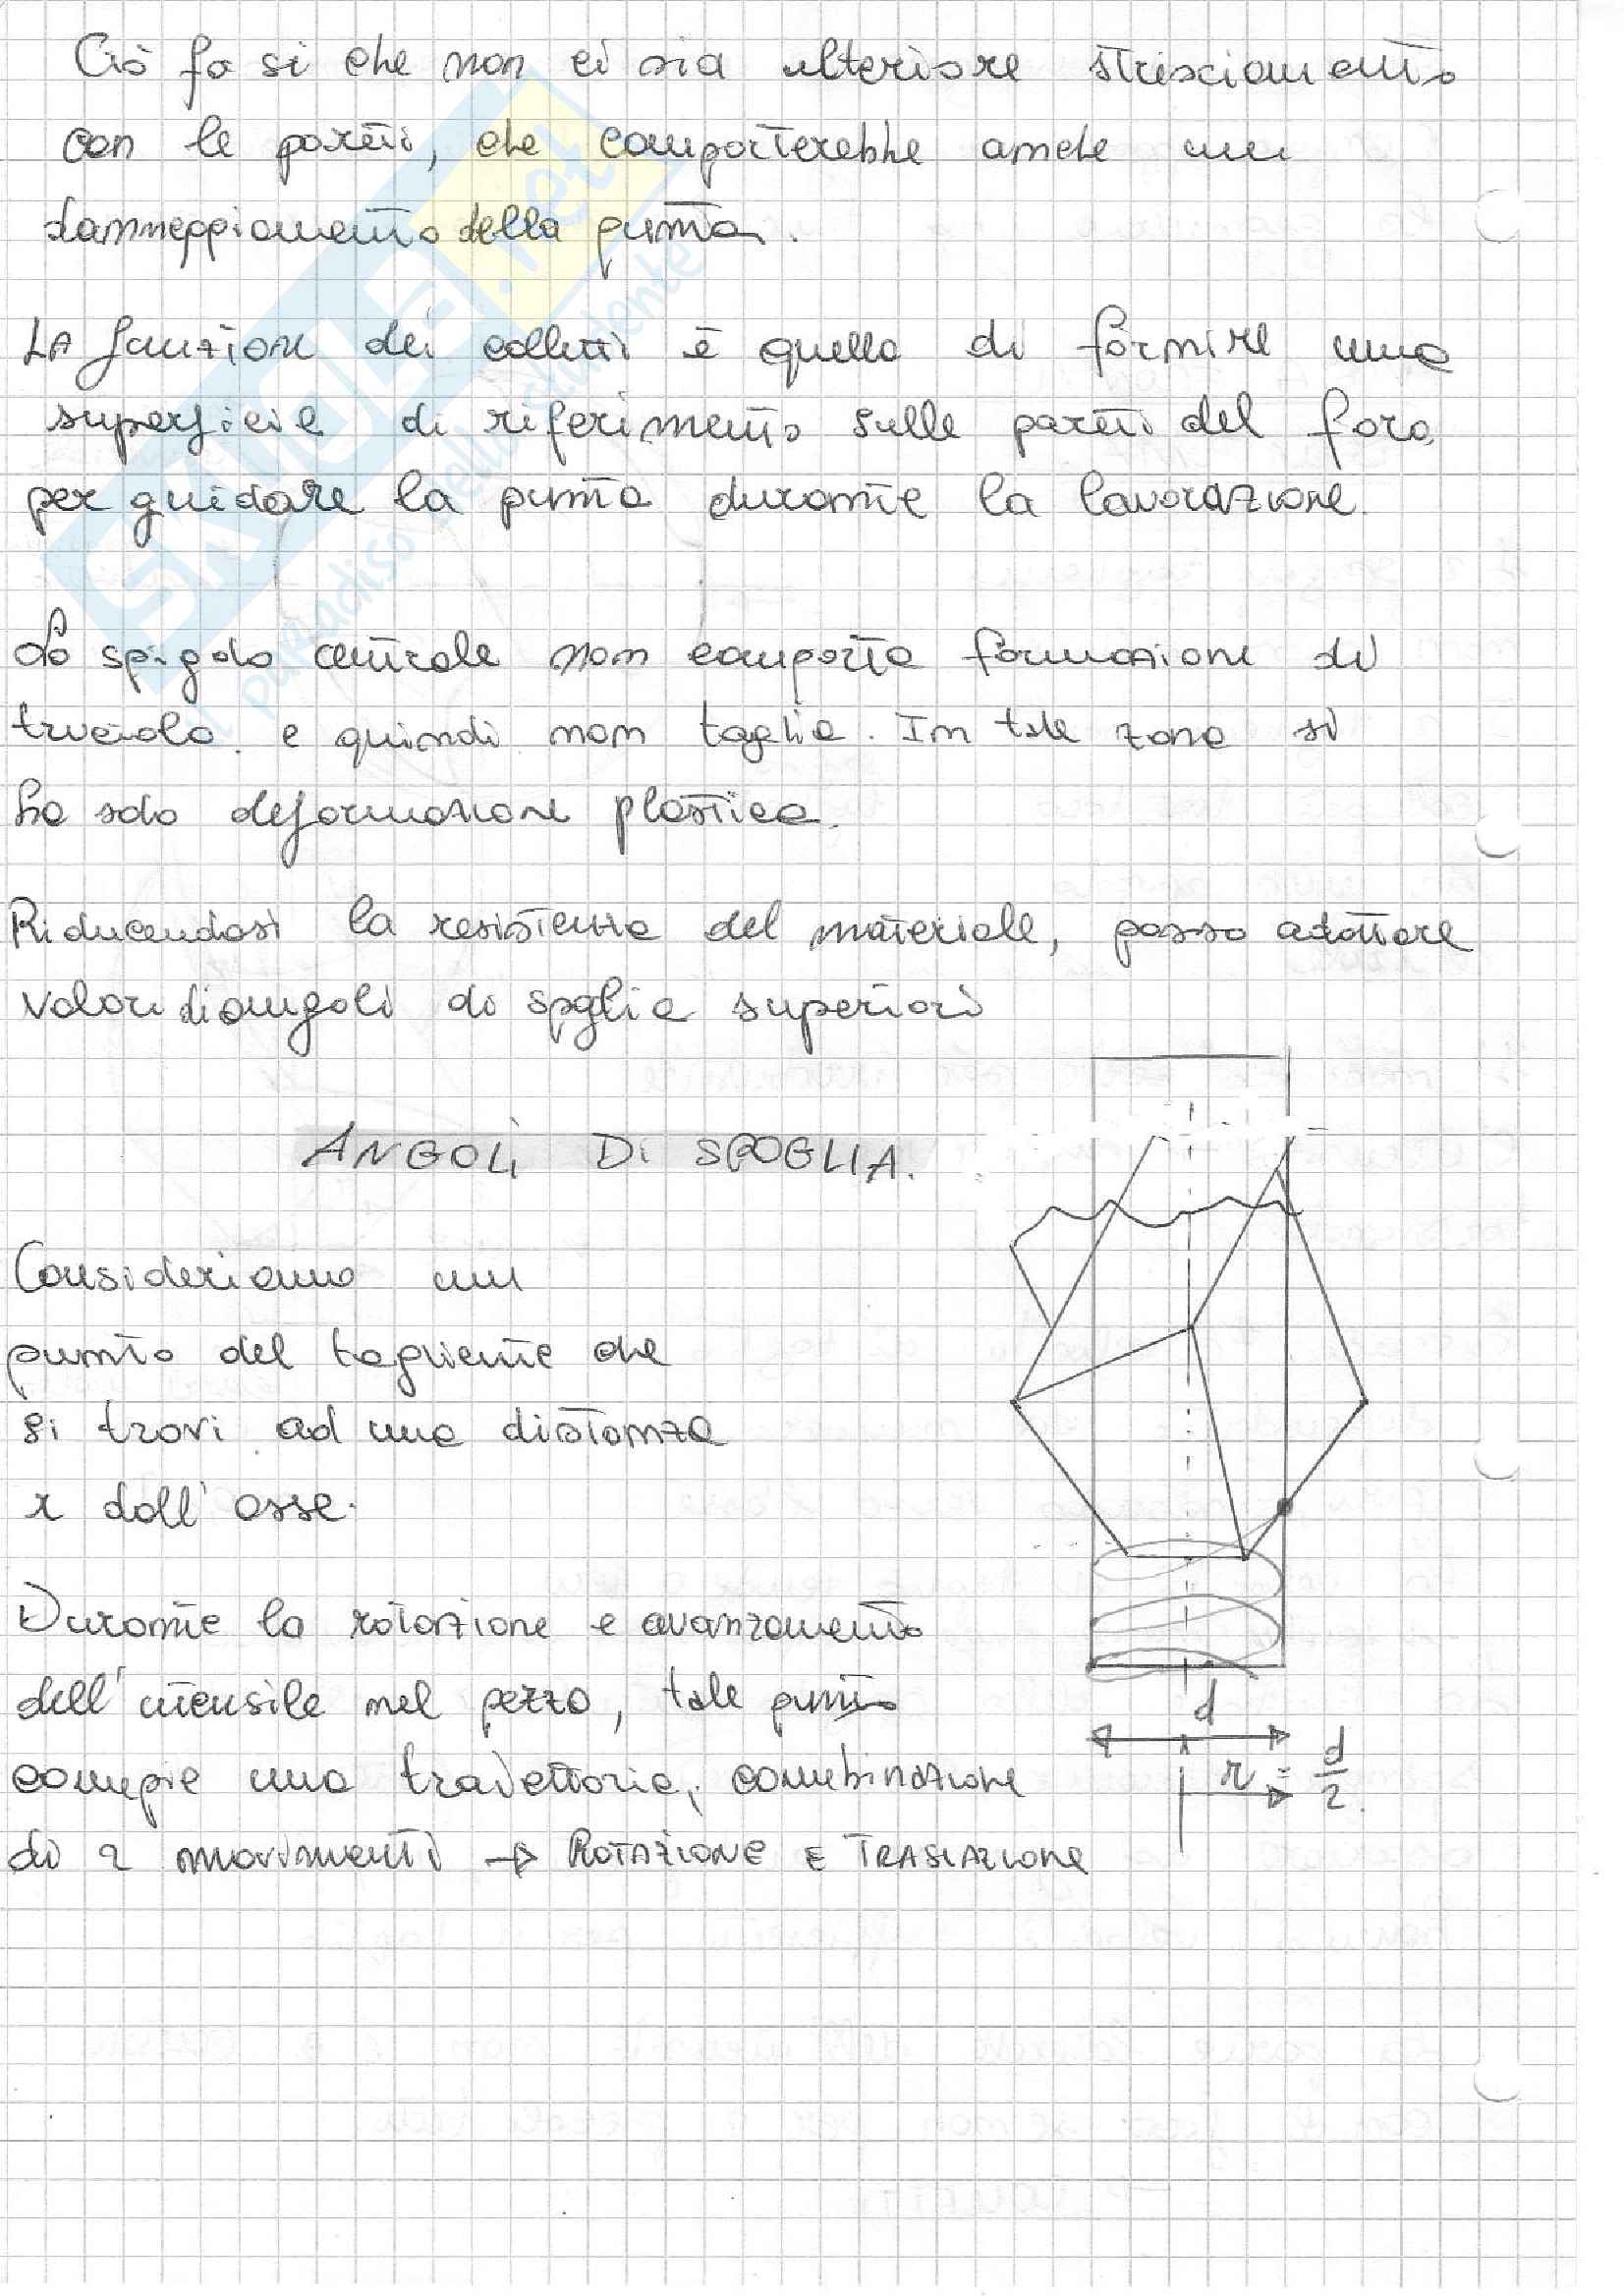 Ciò fa si che non ci sia ulteriore strisciamento
con le pareti, che comporterebbe anche un
danneggiamento della punta.
LA funzione dei colletti è quella di fornire una
superficie di riferimento sulle pareti del foro
per guidare la punta durante la lavorazione.
Lo spigolo centrale non comporta formazione di
truciolo e quindi non taglia. In tale zona si
ha solo deformazione plastica.
Riducendosi la resistenza del materiale, posso adottare
valori di angoli di spoglia superiori
ANGOLI DI SPOGLIA.
Consideriamo un
punto del tagliente che
si trovi ad una distanza
r dall'asse.
Durante la rotazione e avanzamento
dell'utensile nel pezzo, tale punto
compie una traiettoria, combinazione
di 2 movimenti → ROTAZIONE E TRASLAZIONE
d
r = d/2
SKUOLA.net
il paradiso dello studente